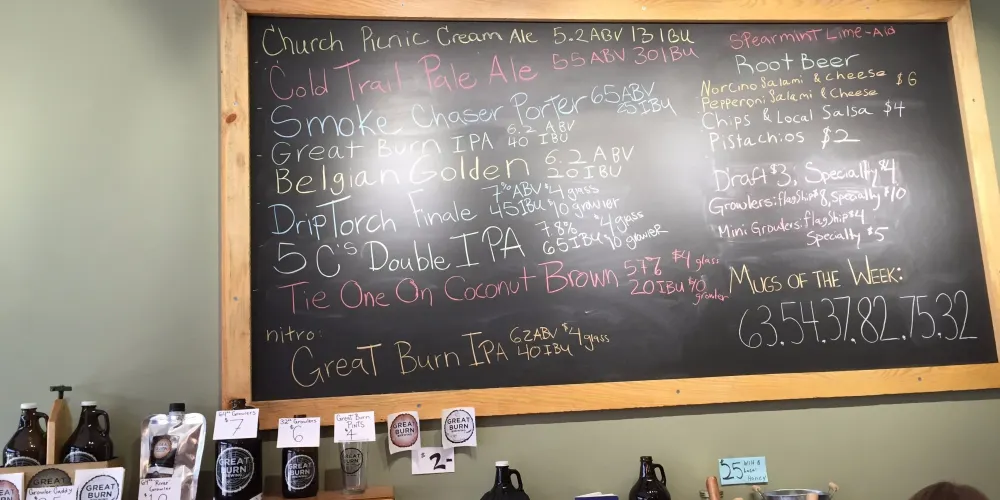 Church Picnic Cream Ale 5.2ABV 13 IBU
Cold Trail Pale Ale 55 ABV 30IBU
Smoke Chaser Porter 65ABV
25IBU
Great Burn IPA 6.2 ABV
40 IBU
Belgian Golden 6.2 ABV
20 IBU
DripTorch Finale 7% ABV $4 glass
45IBU $10 growler
5 C's Double IPA 7.8% $4 glass
65IBU $10 growler
Tie One On Coconut Brown 57% $4 glass
20IBU $10 growler
nitro:
Great Burn IPA 62ABV $4 glass
40IBU
Spearmint Lime-Ade
Root Beer
Norcino Salami & Cheese $6
Pepperoni Salami & Cheese
Chips & Local Salsa $4
Pistachios $2
Draft $3, Specialty $4
Growlers: flagship $8, Specialty $10
Mini Growlers: flagship $4
Specialty $5
Mugs of the Week:
63.54.37.82.75.32
64oz Growlers
$7
32oz Growlers
$6
Great Burn
Pints
$4
GREAT
BURN
GREAT
BURN
$2-
GREAT
BURN
GREAT
BURN
GREAT
BURN
GREAT
BURN
GREAT
BURN
Growler Caddy
25